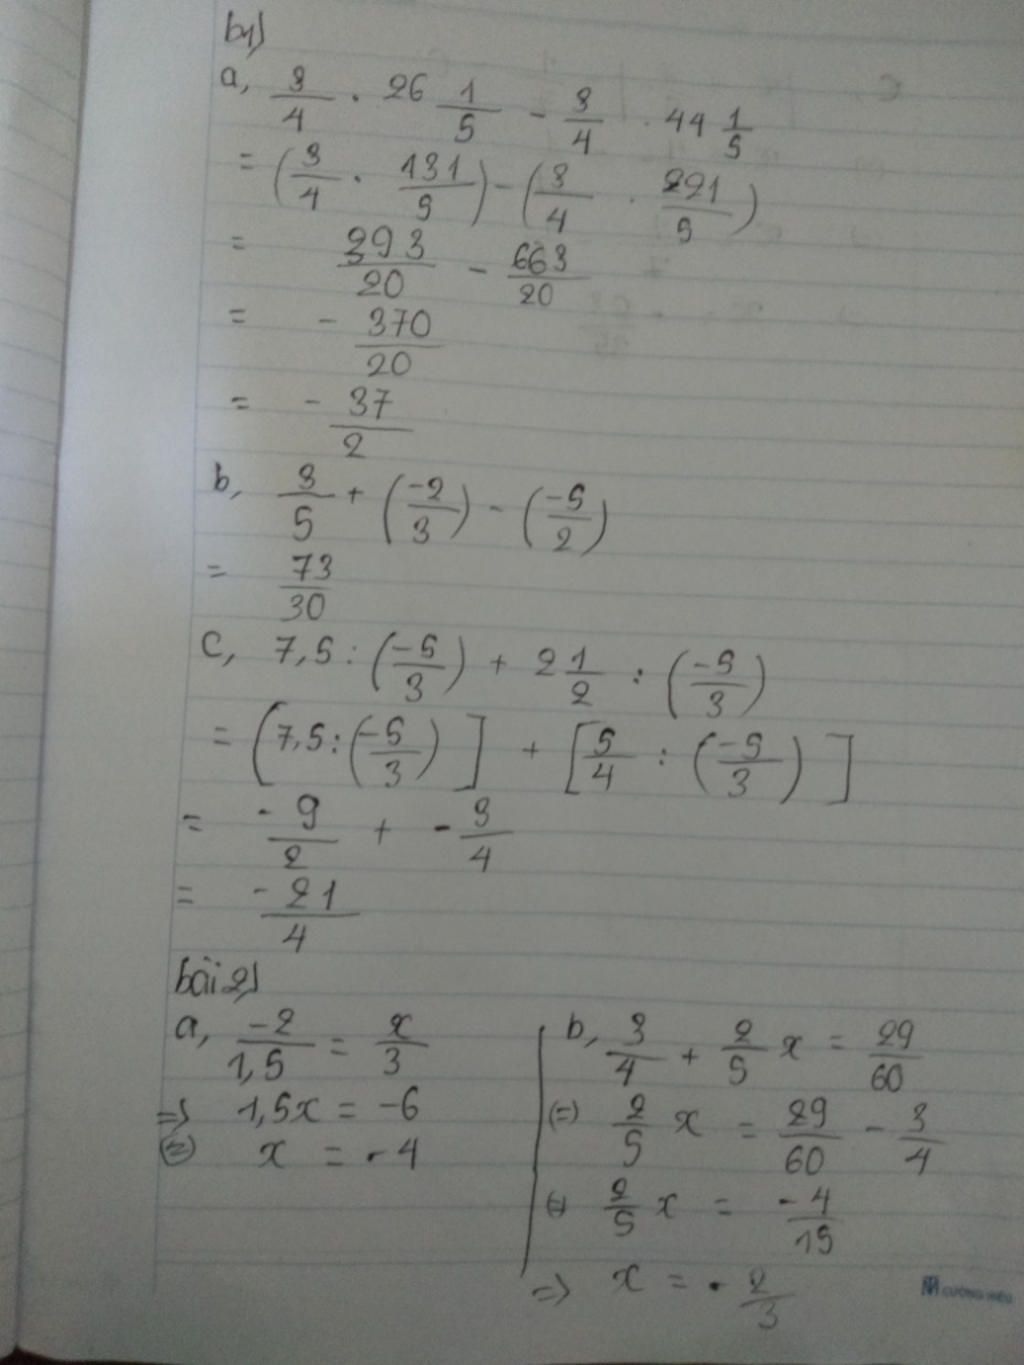 b1)
a, 3/4 . 26 1/5 - 3/4 . 44 1/5
= (3/4 . 131/5) - (3/4 . 221/5)
= 393/20 - 663/20
= - 370/20
= - 37/2
b, 3/5 + (-2/3) - (-5/2)
= 73/30
C, 7,5 : (-5/3) + 2 1/2 : (-5/3)
= [7,5 : (-5/3)] + [5/4 : (-5/3)]
= -9/2 + -3/4
= -21/4
bài 2)
a, -2/1,5 = x/3
=> 1,5x = -6
(=) x = -4
b, 3/4 + 2/5 x = 29/60
(=) 2/5 x = 29/60 - 3/4
(=) 2/5 x = -4/15
=> x = - 2/3
CƯỜNG HIẾU